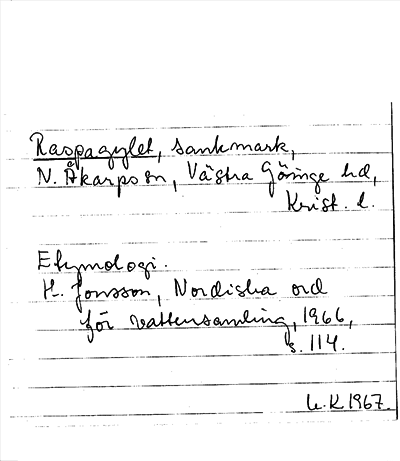 Raspagylet, sankmark,
N. Åkarps sn, Västra Göinge hd,
Krist. l.
Etymologi.
H. Jonsson, Nordiska ord
för vattensamling, 1966,
s. 114.
U.K 1967.